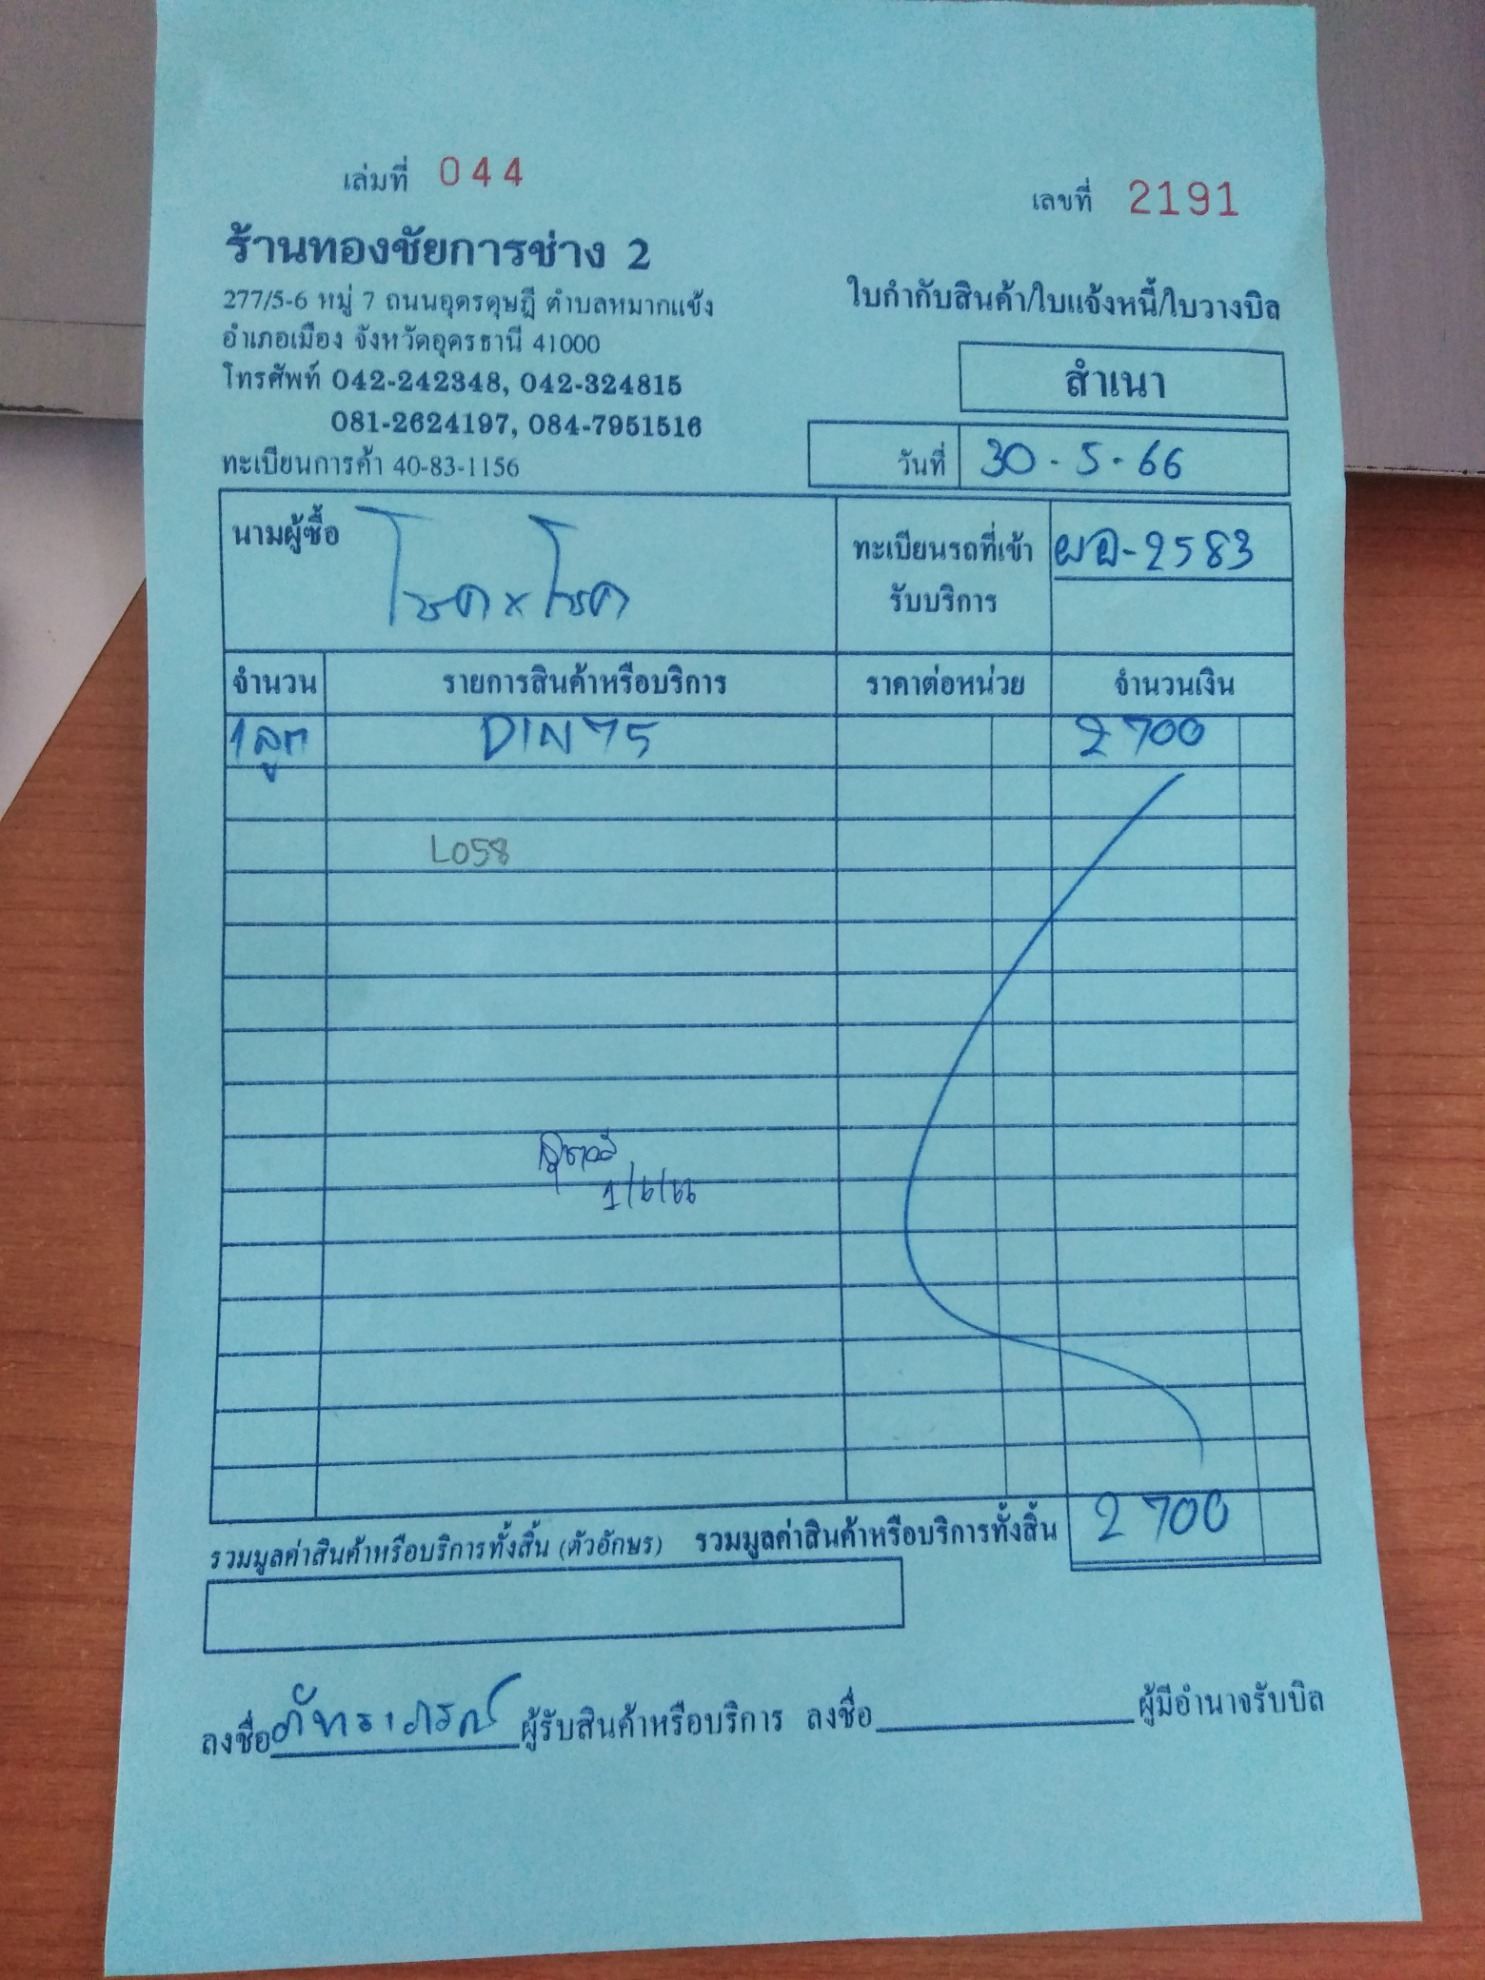 เล่มที่ 044
เลขที่ 2191
ร้านทองชัยการช่าง 2
277/5-6 หมู่ 7 ถนนอุดรดุษฎี ตำบลหมากแข้ง
อำเภอเมือง จังหวัดอุดรธานี 41000
โทรศัพท์ 042-242348, 042-324815
081-2624197, 084-7951516
ทะเบียนการค้า 40-83-1156
ใบกำกับสินค้า/ใบแจ้งหนี้/ใบวางบิล
สำเนา
วันที่ 30-5-66
นามผู้ซื้อ โชค x โชค
ทะเบียนรถที่เข้า
รับบริการ
2583
จำนวน รายการสินค้าหรือบริการ ราคาต่อหน่วย จำนวนเงิน
1 ลูก DIN 75 2700
L058
1/6/66
รวมมูลค่าสินค้าหรือบริการทั้งสิ้น (ตัวอักษร) รวมมูลค่าสินค้าหรือบริการทั้งสิ้น 2700
ลงชื่อ ภัทราภรณ์ ผู้รับสินค้าหรือบริการ ลงชื่อ ผู้มีอำนาจรับบิล